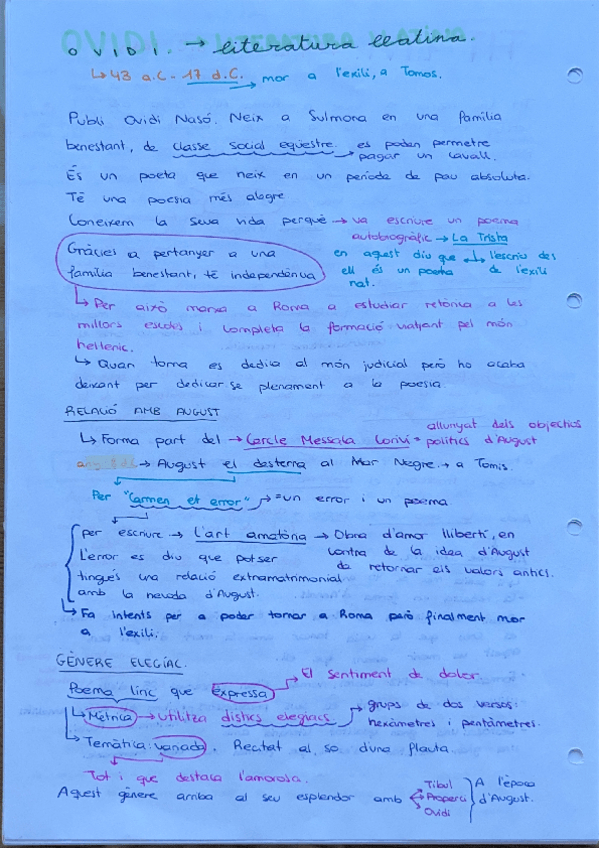 OVIDI. → literatura llatina.
↳ 43 a.C - 17 d.C. → mor a l'exili, a Tomos.
Publi Ovidi Nasó. Neix a Sulmona en una família
benestant, de classe social eqüestre. → es poden permetre
pagar un cavall.
És un poeta que neix en un període de pau absoluta.
Té una poesia més alegre
Coneixem la seva vida perquè → va escriure un poema
autobiogràfic → La Trista
Gràcies a pertanyer a una
família benestant, té independència
en aquest diu que
ell és un poeta
nat.
↳ l'escriu des
de l'exili
↳ Per això marxa a Roma a estudiar retòrica a les
millors escoles i completa la formació viatjant pel món
hel·lènic.
↳ Quan torna es dedica al món judicial però ho acaba
deixant per dedicar-se plenament a la poesia.
RELACIÓ AMB AUGUST
↳ Forma part del → Cercle Messala Corví = allunyat dels objectius
polítics d'August
→ August el desterra al Mar Negre. → a Tomis
Per "Carmen et error" → = un error i un poema
per escriure → L'art amatòria → Obra d'amor llibertí, en
contra de la idea d'August
de retornar els valors antics.
L'error es diu que potser
tingués una relació extramatrimonial
amb la neboda d'August.
↳ Fa intents per a poder tornar a Roma però finalment mor
a l'exili.
GÈNERE ELEGÍAC.
Poema líric que expressa → El sentiment de dolor.
↳ Mètrica → utilitza dístics elegíacs → grups de dos versos:
hexàmetres i pentàmetres.
↳ Temàtica: variada. Recitat al so d'una flauta.
Tot i que destaca l'amorosa.
Aquest gènere arriba al seu esplendor amb
Tibul
Properci
Ovidi
A l'època
d'August.